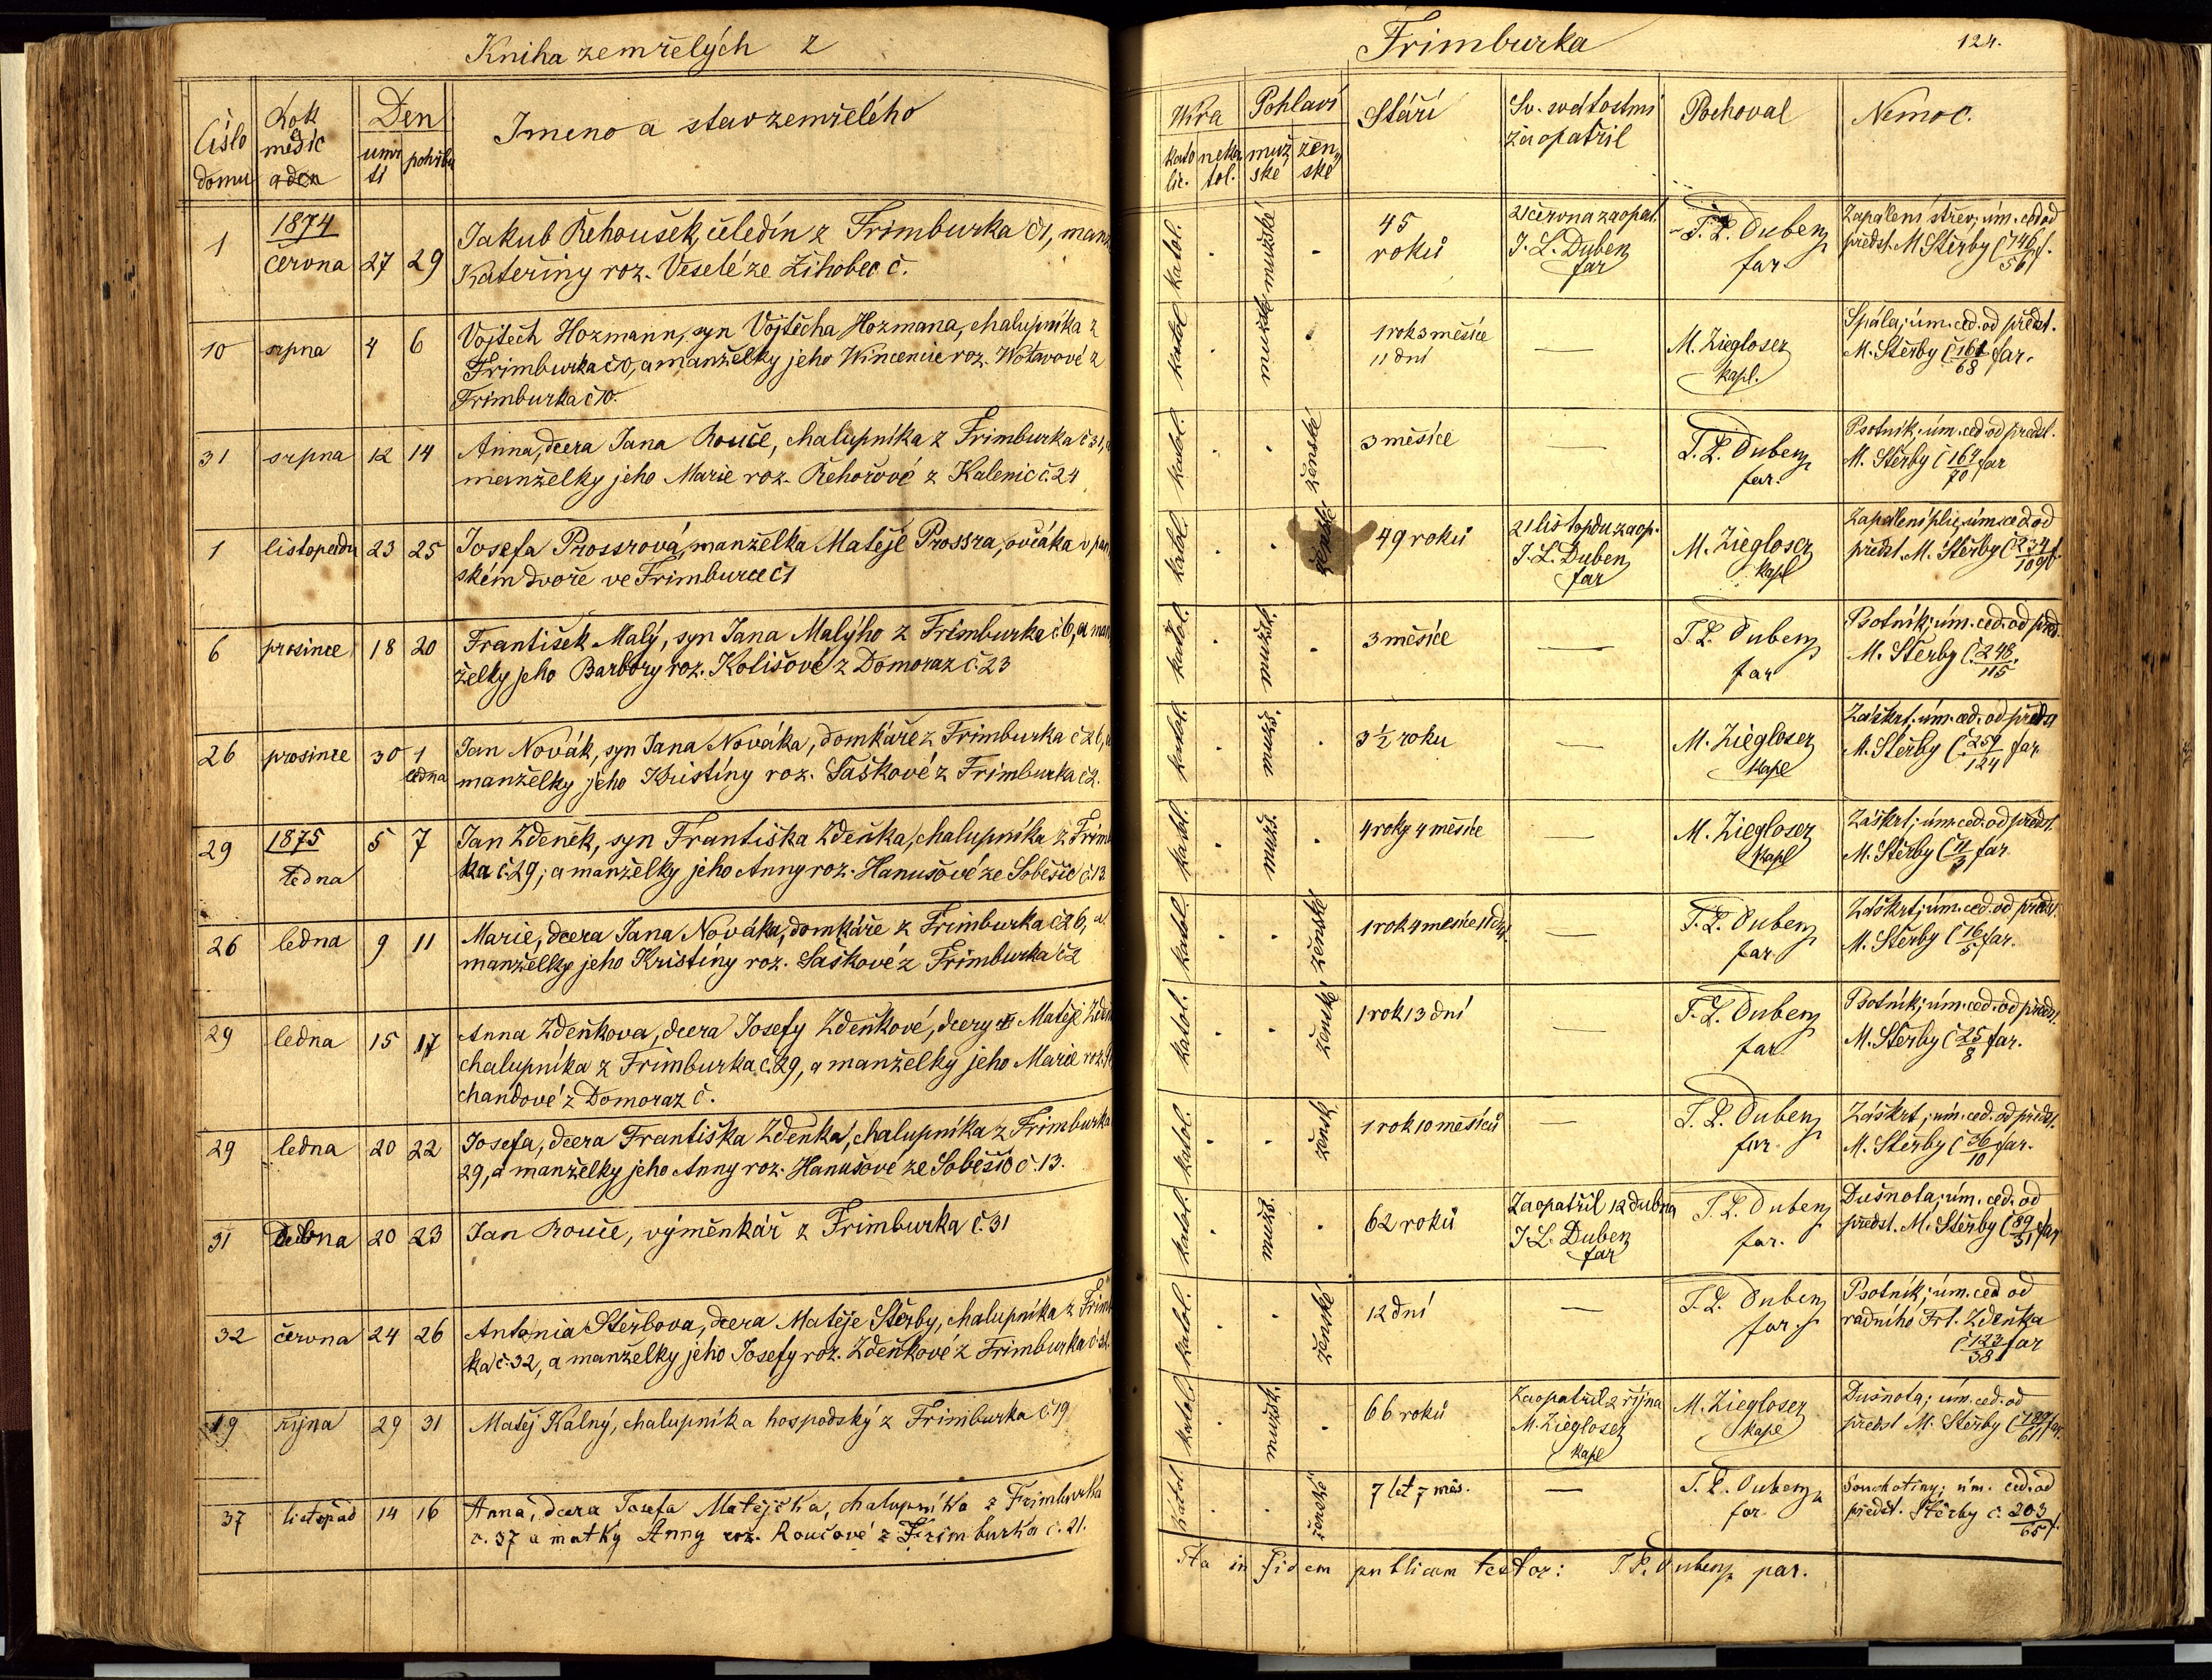 Kniha zemřelých z
Frimburka
124.
Číslo domu
Rok měsíc a den
Den
úmrtí
pohřbu
Jmeno a stav zemřelého
Wíra
katolic.
nekatol.
Pohlaví
mužské
ženské
Stáří
Sv. svátostmi zaopatřil
Pochoval
Nemoc.
1
1874
června 27 29
Jakub Řehoušek, čeledín z Frimburka č1, manž
Kateřiny roz. Veselé ze Žihobec č.
katol. mužské
45 roků
21 června zaopat. J. L. Duben far
J. L. Duben far.
Zapálení střev; úm. ced od
předst. M Štěrby č 146/56 f.
10 srpna 4 6
Vojtěch Hozmann, syn Vojtěcha Hozmana, chalupníka z
Frimburka č10, a manželky jeho Wincencie roz. Wotavové z
Frimburka č10.
katol mužské
1 rok 3 měsíce
11 dní
—
M. Ziegloser kapl.
Spála; úm. ced. od předst.
M. Štěrby č 161/68 far.
31 srpna 12 14
Anna, dcera Jana Rouče, chalupníka z Frimburka č31, a
manželky jeho Marie roz. Řehořové z Kalenic č.24
katol. ženské
3 měsíce
—
J. L. Duben far.
Psotník; úm. ced od předst.
M. Štěrby č 164/70 far
1 listopadu 23 25
Josefa Prossrová, manželka Matěje Prossra, ovčáka v pan
ském dvoře ve Frimburce č1
katol. ženské
49 roků
21 listopdu zaop. J. L. Duben far
M. Ziegloser kapl
Zapálení plic, úm. ced od
předst. M. Štěrby č 234/109 f.
6 prosince 18 20
František Malý, syn Jana Malýho z Frimburka č6, a man
želky jeho Barbory roz. Kolišové z Domoraz č.23
katol. mužsk.
3 měsíce
—
J. L. Duben far
Psotník; úm. ced. od před.
M. Štěrby č. 248/115
26 prosince 30 1 ledna
Jan Novák, syn Jana Nováka, domkáře z Frimburka č26, a
manželky jeho Kristíny roz. Saškové z Frimburka č2.
katol. mužs.
3 ½ roku
—
M. Ziegloser kapl
Záškrt; úm. ced. od předst
M. Štěrby č 259/124 far
29
1875
ledna 5 7
Jan Zdeněk, syn Františka Zdeňka, chalupníka z Frimb
ka č.29, a manželky jeho Anny roz. Hanušové ze Soběšic č.13.
katol. mužs.
4 roky 4 měsíce
—
M. Ziegloser kapl
Záškrt; úm. ced. od předst.
M. Štěrby č 11/3 far.
26 ledna 9 11
Marie, dcera Jana Nováka, domkáře z Frimburka č26, a
manželky jeho Kristíny roz. Saškové z Frimburka č2
katol. ženské
1 rok 4 měsíce 11 dny
—
J. L. Duben far.
Záškrt; úm. ced. od předst.
M. Štěrby č 16/5 far.
29 ledna 15 17
Anna Zdeňkova, dcera Josefy Zdeňkové, dcery Matěje Zdeň
chalupníka z Frimburka č.29, a manželky jeho Marie roz.
chandové z Domoraz č.
katol. ženské
1 rok 13 dní
—
J. L. Duben far
Psotník; úm. ced. od předst.
M. Štěrby č 25/8 far.
29 ledna 20 22
Josefa, dcera Františka Zdeňka, chalupníka z Frimburka
29, a manželky jeho Anny roz. Hanušové ze Soběšic č.13.
katol. žensk.
1 rok 10 měsíců
—
J. L. Duben far.
Záškrt; úm. ced. od předst.
M. Štěrby č 36/10 far.
31 Dubna 20 23
Jan Rouče, výměnkář z Frimburka č.31
katol. mužs.
62 roků
Zaopatřil 12 dubna J. L. Duben far
J. L. Duben far.
Dušnota; úm. ced. od
předst. M. Štěrby č 89/31 far
32 června 24 26
Antonia Štěrbova, dcera Matěje Štěrby, chalupníka z Frimb
ka č.32, a manželky jeho Josefy roz. Zdeňkové z Frimburka č.31.
katol. ženské
12 dní
—
J. L. Duben far.
Psotník; úm. ced od
radního Frt. Zdeňka
č 123/38 far
19 října 29 31
Matěj Kálný, chalupník a hospodský z Frimburka č.19
katol. mužsk.
66 roků
Zaopatřil 2 října M. Ziegloser kapl
M. Ziegloser kapl
Dušnota; úm. ced. od
předst M. Štěrby č far.
37 listopad 14 16
Anna, dcera Josefa Matějčka, chalupníka z Frimburka
č. 37 a matky Anny roz. Roučové z Frimburka č. 21.
katol. ženské
7 let 7 měs.
—
J. L. Duben far.
Souchotiny; úm. ced. od
předst. Štěrby č. 203/65 f.
Ita in fidem publicam testor: J. L. Duben par.